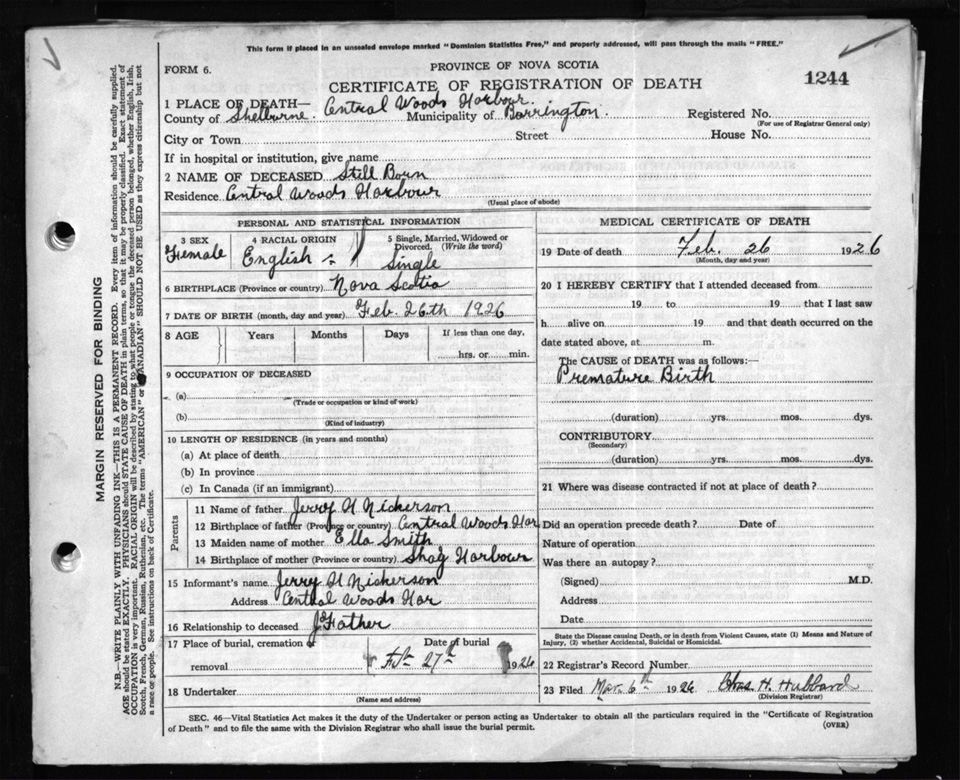 This form if placed in an unsealed envelope marked "Dominion Statistics Free," and properly addressed, will pass through the mails "FREE."
FORM 6.
PROVINCE OF NOVA SCOTIA
CERTIFICATE OF REGISTRATION OF DEATH
1244
1 PLACE OF DEATH— Central Woods Harbour.
County of Shelburne. Municipality of Barrington. Registered No.
(For use of Registrar General only)
City or Town Street House No.
If in hospital or institution, give name
2 NAME OF DECEASED Still Born
Residence Central Woods Harbour
(Usual place of abode)
PERSONAL AND STATISTICAL INFORMATION
3 SEX 4 RACIAL ORIGIN 5 Single, Married, Widowed or Divorced. (Write the word)
Female English Single
6 BIRTHPLACE (Province or country) Nova Scotia
7 DATE OF BIRTH (month, day and year) Feb. 26th 1926
8 AGE Years Months Days If less than one day,
hrs. or min.
9 OCCUPATION OF DECEASED
(a)
(Trade or occupation or kind of work)
(b)
(Kind of industry)
10 LENGTH OF RESIDENCE (in years and months)
(a) At place of death
(b) In province
(c) In Canada (if an immigrant)
Parents
11 Name of father Jerry H Nickerson
12 Birthplace of father (Province or country) Central Woods Har
13 Maiden name of mother Ella Smith
14 Birthplace of mother (Province or country) Shag Harbour
15 Informant's name Jerry H Nickerson
Address Central Woods Har
16 Relationship to deceased Father
17 Place of burial, cremation or Date of burial
removal Feb 27th 1926
18 Undertaker
(Name and address)
MEDICAL CERTIFICATE OF DEATH
19 Date of death Feb. 26 1926
(Month, day and year)
20 I HEREBY CERTIFY that I attended deceased from
19 to 19 that I last saw
h alive on 19 and that death occurred on
date stated above, at m.
The CAUSE of DEATH was as follows:—
Premature Birth
(duration) yrs. mos. dys.
CONTRIBUTORY
(Secondary)
(duration) yrs. mos. dys.
21 Where was disease contracted if not at place of death?
Did an operation precede death? Date of
Nature of operation
Was there an autopsy?
(Signed) M.D.
Address
Date
State the Disease causing Death, or in death from Violent Causes, state (1) Means and Nature of
Injury, (2) whether Accidental, Suicidal or Homicidal.
22 Registrar's Record Number
23 Filed Mar. 6th 1926 Chas. H. Hubbard
(Division Registrar)
SEC. 46—Vital Statistics Act makes it the duty of the Undertaker or person acting as Undertaker to obtain all the particulars required in the "Certificate of Registration
of Death" and to file the same with the Division Registrar who shall issue the burial permit. (OVER)
MARGIN RESERVED FOR BINDING
N.B.—WRITE PLAINLY WITH UNFADING INK—THIS IS A PERMANENT RECORD. Every item of information should be carefully supplied.
AGE should be stated EXACTLY. PHYSICIANS should STATE CAUSE OF DEATH in plain terms, so that it may be properly classified. Exact statement of
OCCUPATION is very important. RACIAL ORIGIN will be described by stating to what people or tongue the deceased person belonged, whether English, Irish,
Scotch, French, German, Russian, Ruthenian, etc. The terms "AMERICAN" or "CANADIAN" SHOULD NOT BE USED as they express citizenship but not
a race or people. See instructions on back of Certificate.